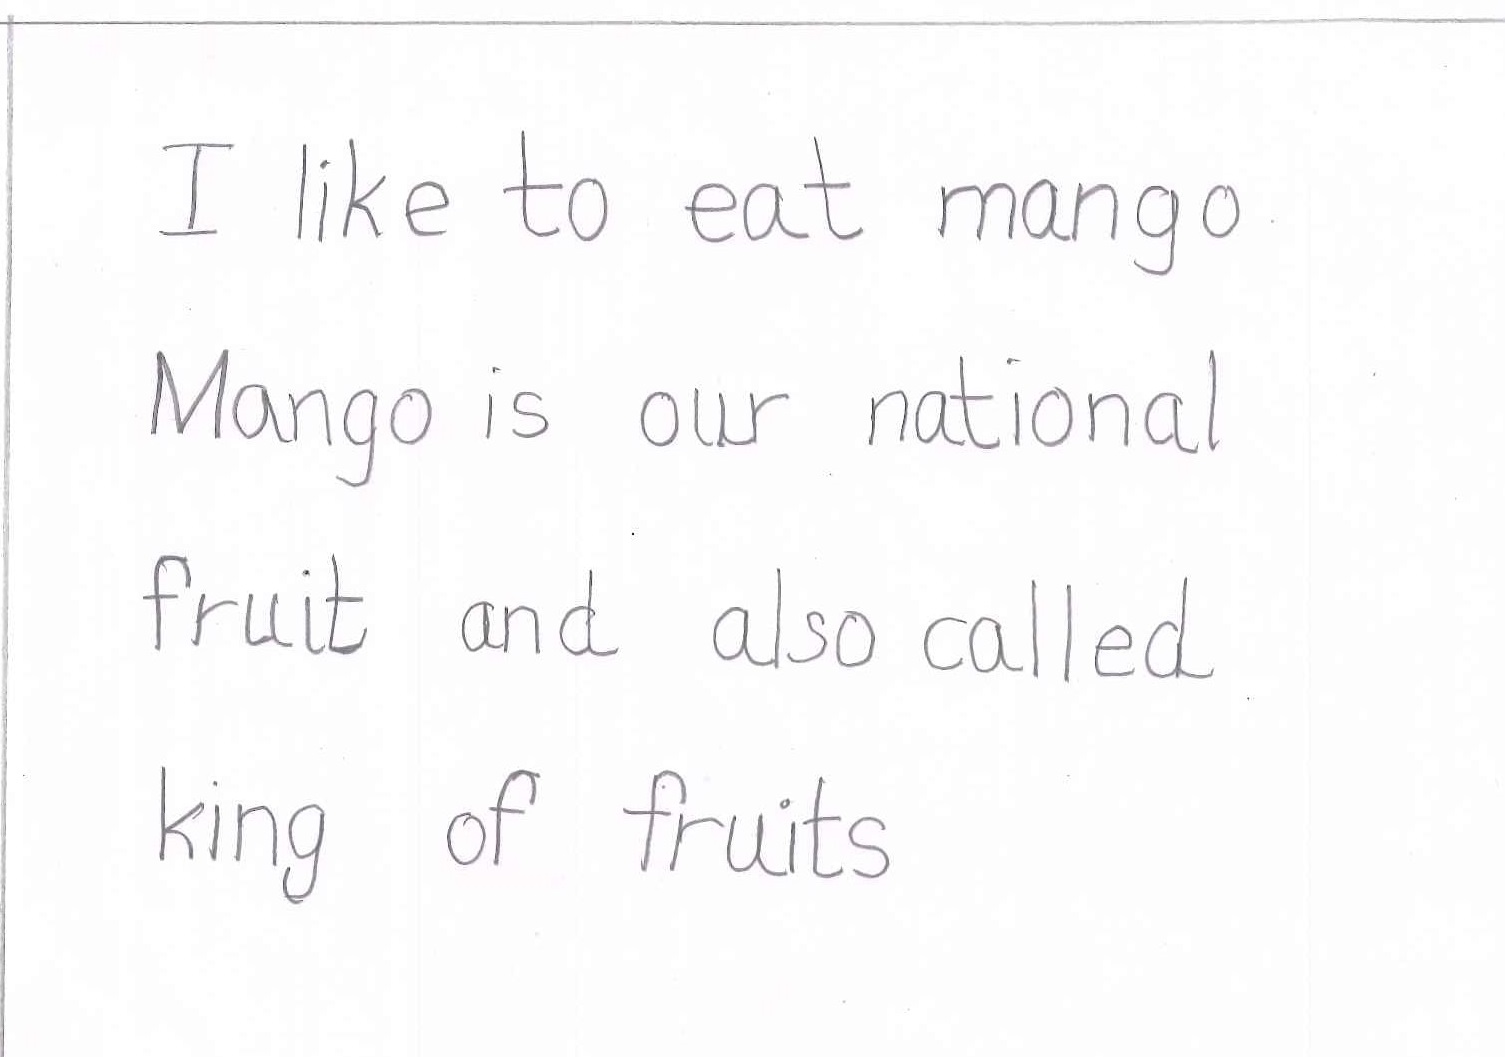 I like to eat mango
Mango is our national
fruit and also called
king of fruits